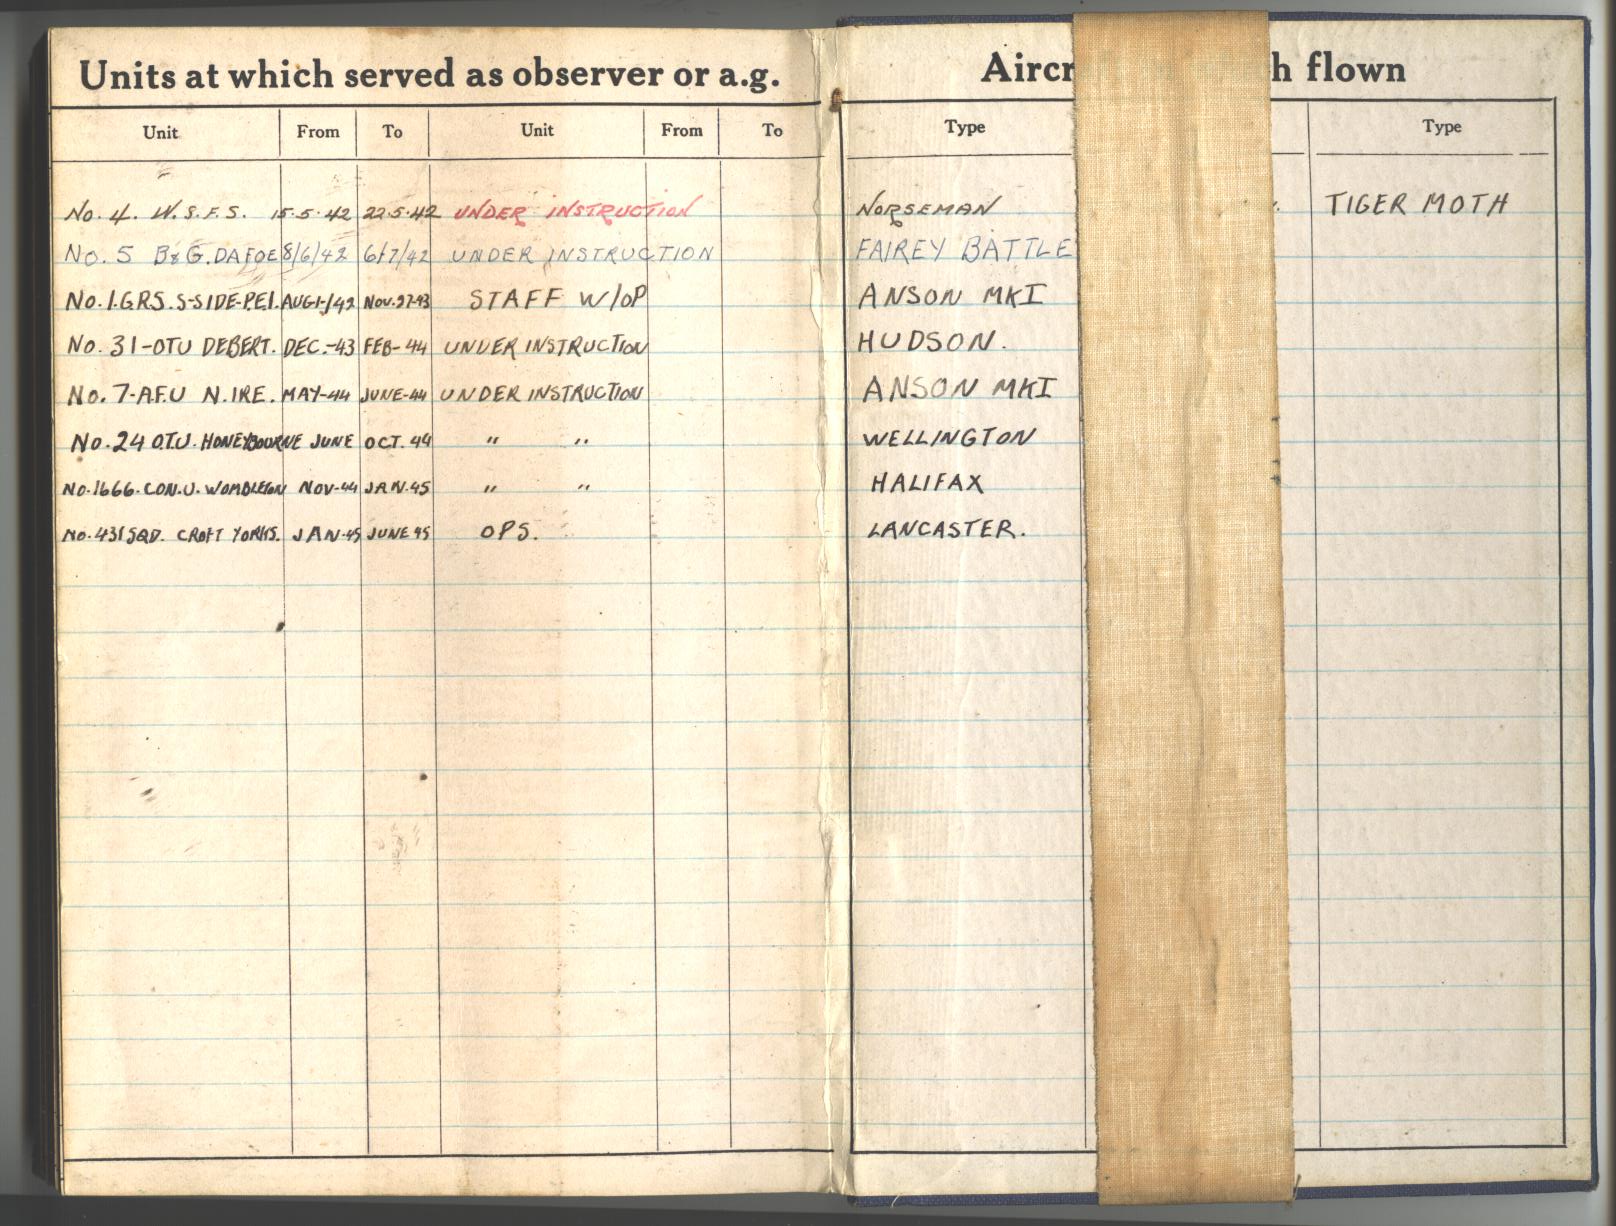 Units at which served as observer or a.g.
Unit From To Unit From To
No. 4. W.S.F.S. 15.5.42 22.5.42 UNDER INSTRUCTION
No. 5 B&G. DAFOE 8/6/42 6/7/42 UNDER INSTRUCTION
No. 1. G.R.S. S-SIDE-P.E.I. AUG-1-/42 NOV.27-43 STAFF W/OP
No. 31-OTU DEBERT. DEC.-43 FEB-44 UNDER INSTRUCTION
No. 7-A.F.U N. IRE. MAY-44 JUNE-44 UNDER INSTRUCTION
No. 24 O.T.U. HONEYBOURNE JUNE OCT. 44 " "
No. 1666. CON.U. WOMBLETON NOV-44 JAN.45 " "
No. 431 SQD. CROFT YORKS. JAN-45 JUNE 45 OPS.
Aircr h flown
Type Type
NORSEMAN TIGER MOTH
FAIREY BATTLE
ANSON MKI
HUDSON.
ANSON MKI
WELLINGTON
HALIFAX
LANCASTER.